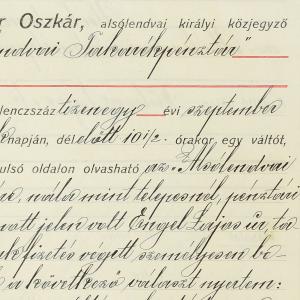 r Oszkár, alsólendvai királyi közjegyző
ndvai Takarékpénztár
lenczszáz tizenegy évi szeptember
napján, dél előtt 10 1/2 órakor egy váltót,
ulsó oldalon olvasható az Alsólendvai
nála mint telepesnél, pénztári
ott jelen volt Engel Lajos úr, ta
kfizetés végett személyesen be
s a következő választ nyertem: